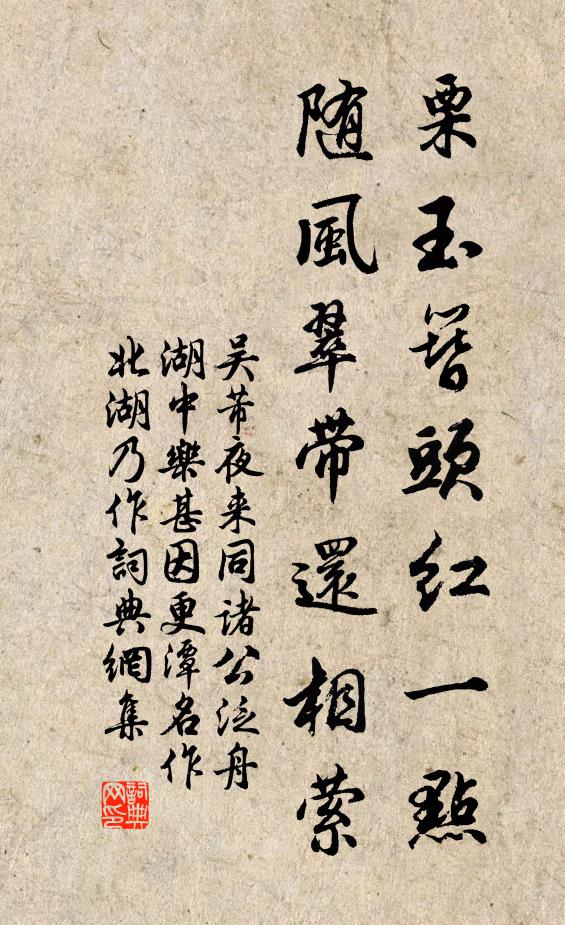 栗玉簪頭紅一點
隨風翠带還相縈
吴芾夜来同諸公泛舟
湖中樂甚因更潭名作
北湖乃作詞典網集
詞典网印